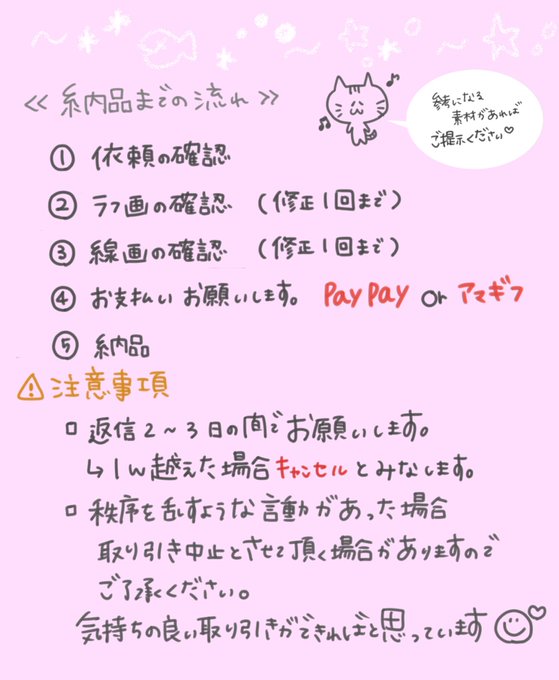 ≪ 納品までの流れ ≫
参考になる
素材があれば
ご提示ください♡
① 依頼の確認
② ラフ画の確認 (修正1回まで)
③ 線画の確認 (修正1回まで)
④ お支払いお願いします。 PayPay or アマギフ
⑤ 納品
⚠注意事項
□ 返信2~3日の間でお願いします。
↳1w越えた場合キャンセルとみなします。
□ 秩序を乱すような言動があった場合
取り引き中止とさせて頂く場合がありますので
ご了承ください。
気持ちの良い取り引きができればと思っています